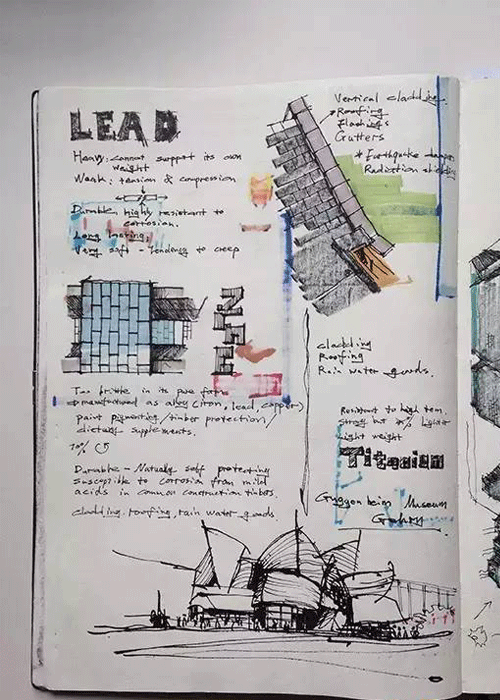 LEAD
Heavy: cannot support its own
weight
Weak: tension & compression
Durable highly resistant to
corrosion.
Long lasting.
Very soft - tendency to creep
Vertical cladding
Roofing
Flashings
Gutters
* Earthquake damper
Radiation shielding
Too brittle in its pure form
manufactured as alloy (iron, lead, copper)
paint pigmenting / timber protection /
dietary supplements.
70%
Durable - Naturally self protecting
susceptible to corrosion from mild
acids in common construction timbers.
cladding, roofing, rain water goods.
ZINC
cladding
Roofing
Rain water goods.
Resistant to high tem.
strong but lighter
Light weight
Titanium
Guggenheim Museum
Gehry